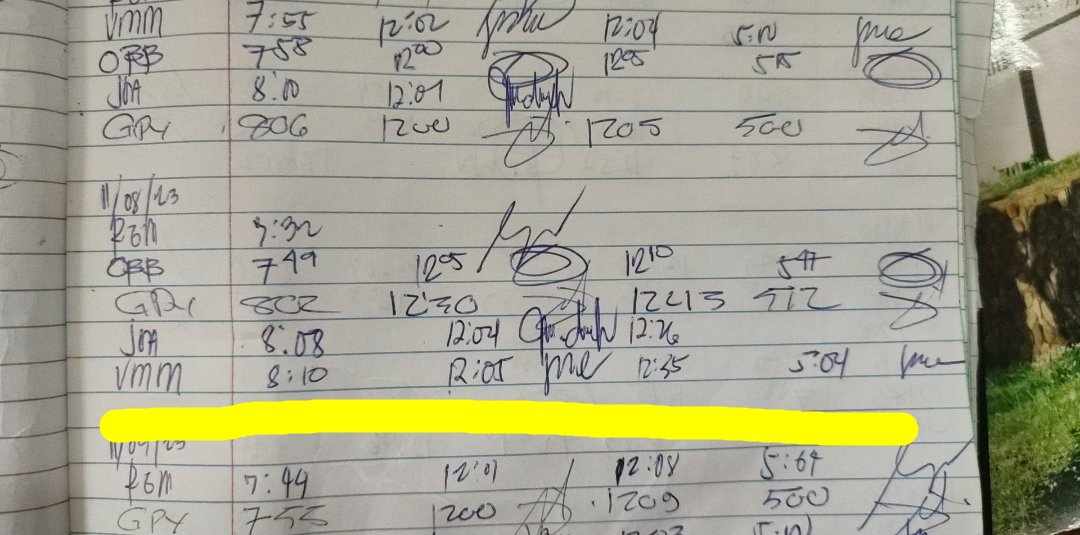 VMM 7:55 12:02 12:04 5:10
OBB 758 1200 1205 515
JOA 8:10 12:01
GPY 806 1200 1205 500
11/08/23
RGM 7:32
OBB 749 1205 1210 547
GPY 802 12:30 512
JOA 8:08 12:04 12:26
VMM 8:10 12:05 12:35 5:04
RGM 7:44 12:01 12:08
GPY 755 1200 1209 500